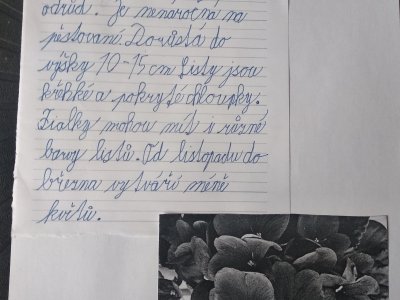 odrůd. Je nenáročná na
pěstování. Dorůstá do
výšky 10-15 cm Listy jsou
křehké a pokryté chloupky.
Fialky mohou mít i různé
barvy listů. Od listopadu do
března vytváří méně
květů.